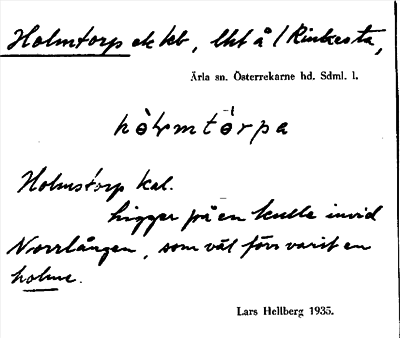 Holmtorp ek kb, lht å /Rinkesta,
Ärla sn. Österrekarne hd. Sdml. l.
Holmstorp kal.
Ligger på en kulle invid
Norrlången, som väl förr varit en
holme.
Lars Hellberg 1935.